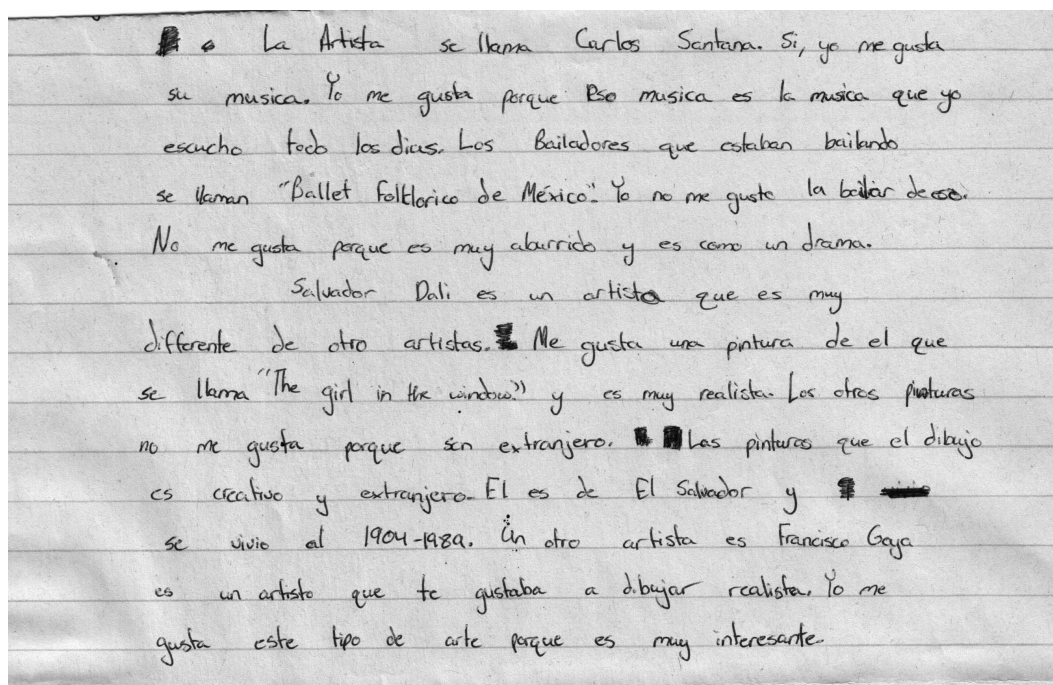 La Artista se llama Carlos Santana. Si, yo me gusta
su musica. Yo me gusta porque eso musica es la musica que yo
escucho todo los dias. Los Bailadores que estaban bailando
se llaman "Ballet Folklorico de México". Yo no me gusta la bailar de ese.
No me gusta porque es muy aburrido y es como un drama.
Salvador Dali es un artista que es muy
differente de otro artistas. Me gusta una pintura de el que
se llama "The girl in the window." y es muy realista. Los otros pinturas
no me gusta porque son extranjero. Las pinturas que el dibujo
es creativo y extranjero. El es de El Salvador y
se vivio al 1904-1989. Un otro artista es Francisco Goya
es un artisto que te gustaba a dibujar realista. Yo me
gusta este tipo de arte porque es muy interesante.